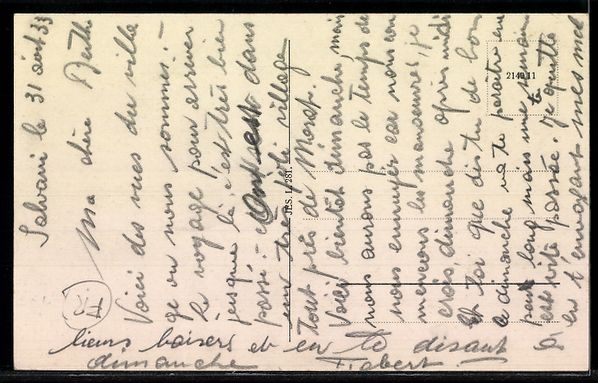 Salvani le 31 août 33
Ma chère Berthe
Voici des vues du villa
ge ou nous sommes.
le voyage pour arriver
jusque là, c'est très bien
passé. c'est dans
un très joli village
tout près de Morat.
Voici bientôt dimanche, mais
nous aurons pas le temps de
nous ennuyer car nous com
mencons les manœuvres, je
crois dimanche après midi
et toi que dis tu de bon
le dimanche va te paraître un
peu long mais une semaine
est vite passée. Je te quitte
en t'envoyant mes meil
lieurs baisers et en te disant à
dimanche
JES. L. 281.
2149 11